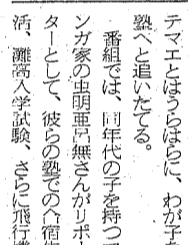 テマエとはうらはらに、わが子を
塾へと追いたてる。
番組では、同年代の子を持つマ
ンガ家の虫明亜呂無さんがリポー
ターとして、彼らの塾での合宿生
活、灘高入学試験、さらに飛行機